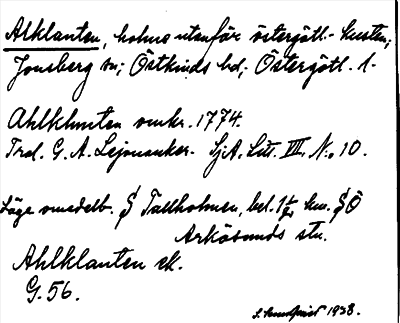 Alklanten, holme utanför östergötl. kusten;
Jonsberg sn; Östkinds hd; Östergötl. l.
Ahlklimten omkr. 1774.
Trol. G. A. Lejonanker. SjA. Litt. III. No. 10.
Läge omedelb. S Tallholmen, bel. 1 1/2 km. SÖ
Arkösunds stn.
Ahlklanten ek.
G. 56.
S. 1938.